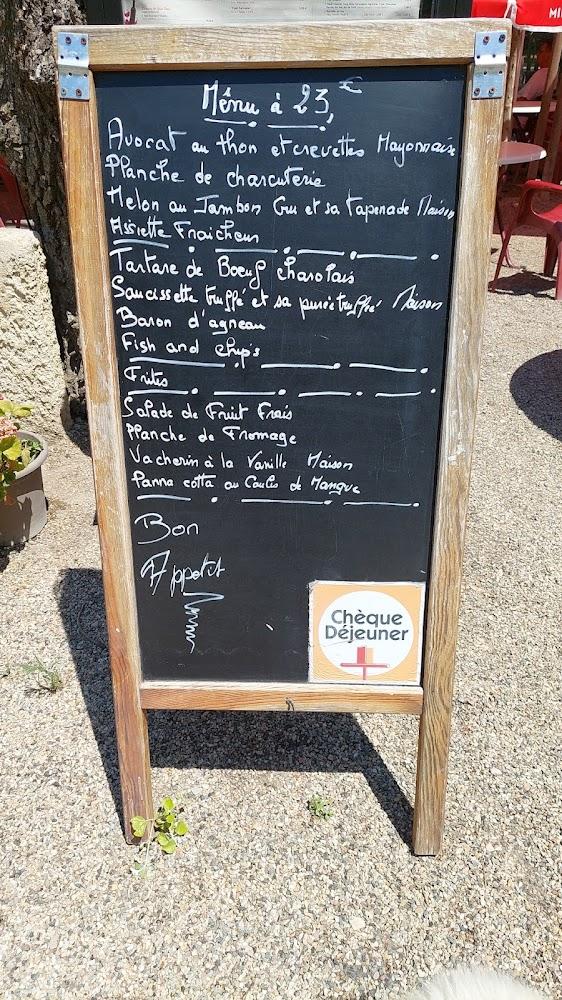 Menu à 23,€
Avocat au thon et crevettes Mayonnaise
Planche de charcuterie
Melon au Jambon Cru et sa tapenade Maison
Assiette Fraicheur
Tartare de Boeuf charolais
Saucissette truffé et sa purée truffé Maison
Baron d'agneau
Fish and chip's
Frites
Salade de Fruit Frais
Planche de Fromage
Vacherin à la Vanille Maison
Panna cotta au Coulis de Mangue
Bon
Appetit
Chèque
Déjeuner
MI